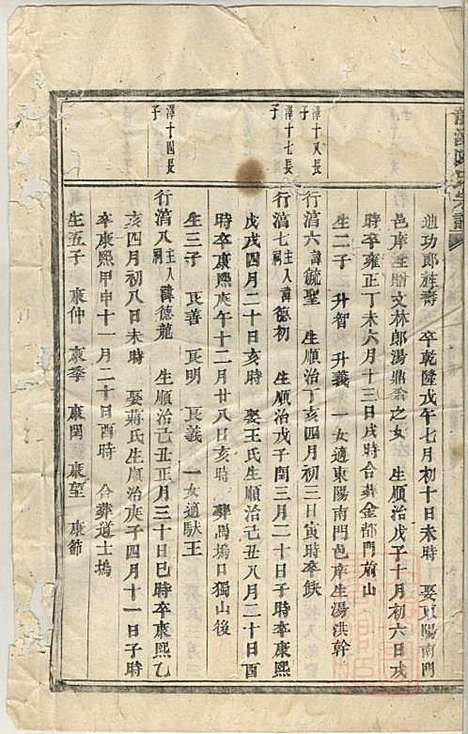 迪功郎旌壽　卒乾隆戊午七月初十日未時　娶東陽南門
邑庠生贈文林郎湯鼎翁之女　生順治戊子十月初六日戌
時卒雍正丁未六月十三日戌時合葬金都門前山
生二子　升智　升義　一女適東陽南門邑庠生湯洪幹
澤十八長子
行滈六　諱毓聖　生順治丁亥四月初三日寅時卒缺
澤十七長子
行滈七　主人祠　諱德初　生順治戊子閏三月二十日子時卒康熙
戊戌四月二十日亥時　娶王氏生順治己丑八月二十日酉
時卒康熙庚午十二月廿八日亥時　葬馬塢口獨山後
生三子　良善　良明　良義　一女適馱王
澤十四長子
行滈八　主人祠　諱德龍　生順治己丑正月三十日巳時卒康熙乙
亥四月初八日未時　娶蔣氏生順治庚子四月十一日子時
卒康熙甲申十一月二十日酉時　合葬道士塢
生五子　康仲　康季　康閏　康望　康節